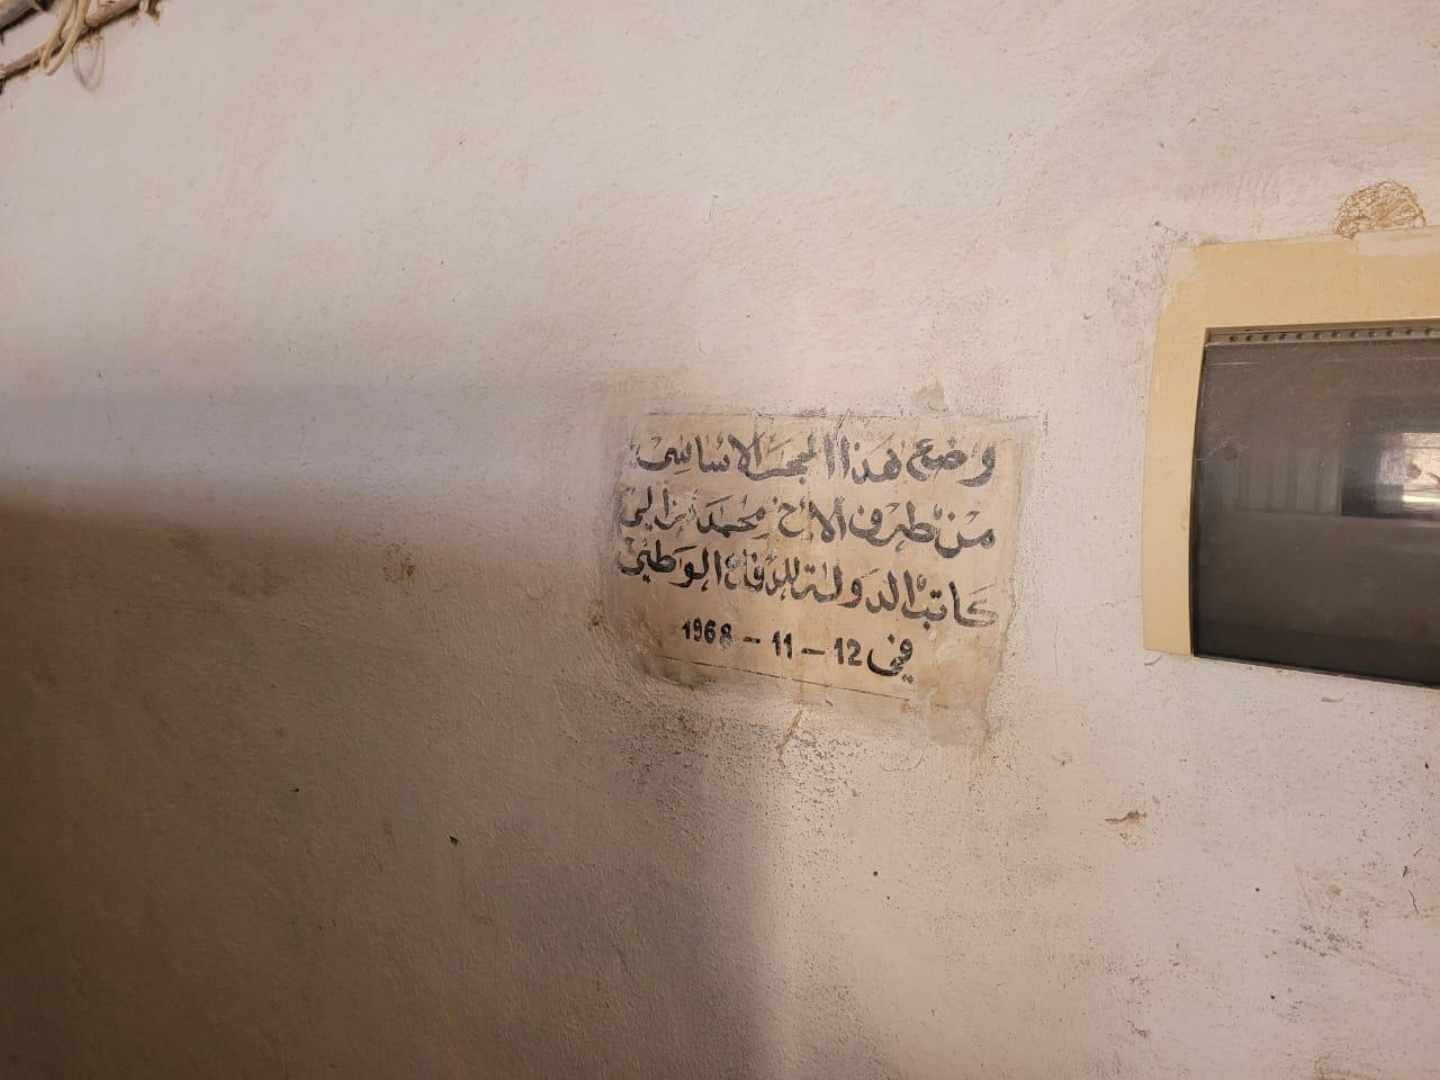 وضع هذا الحجر الاساسي
من طرف الاخ محمد مزالي
كاتب الدولة للدفاع الوطني
في 12 - 11 - 1968